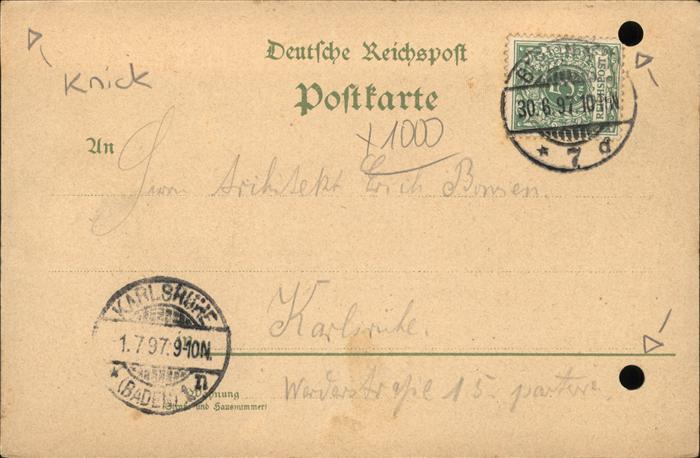 Deutsche Reichspost
Postkarte
Knick
x1000
REICHSPOST
5
30.6.97.10-11N.
* 7 d
An
Herrn Architekt Erich
Karlsruhe.
KARLSRUHE
1.7.97.9-10N.
* (BADEN) 1. n
Wohnung
(Straße und Hausnummer)
15. parterre.